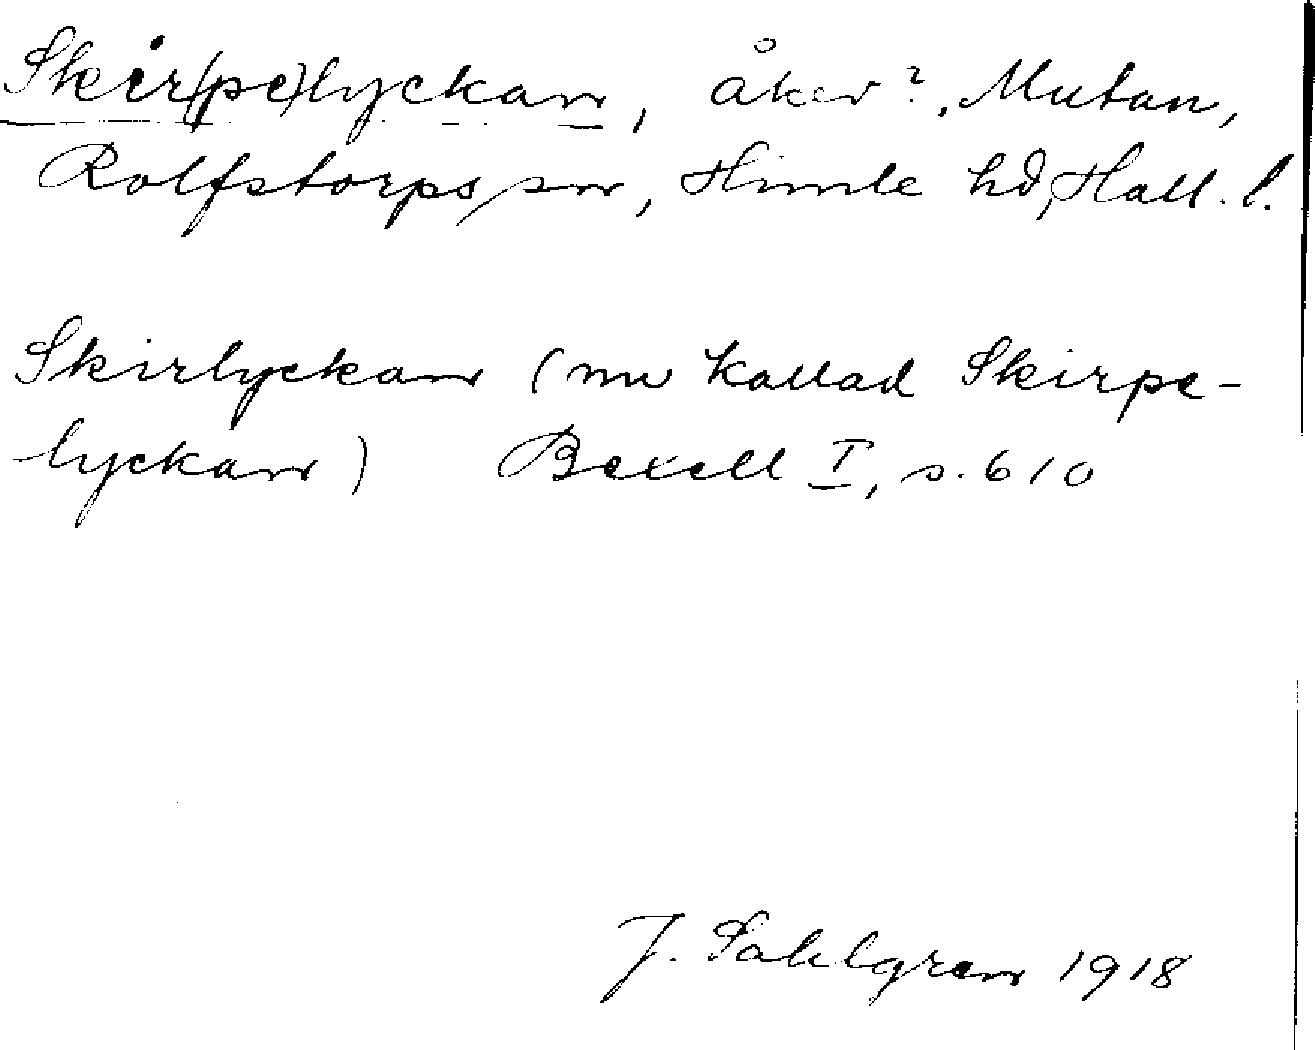 Skir(pe)lyckan, åker?, Mutan,
Rolfstorps sn, Himle hd, Hall. l.
Skirlyckan (nu kallad Skirpe-
lyckan) Bexell I, s. 610
J. Sahlgren 1918